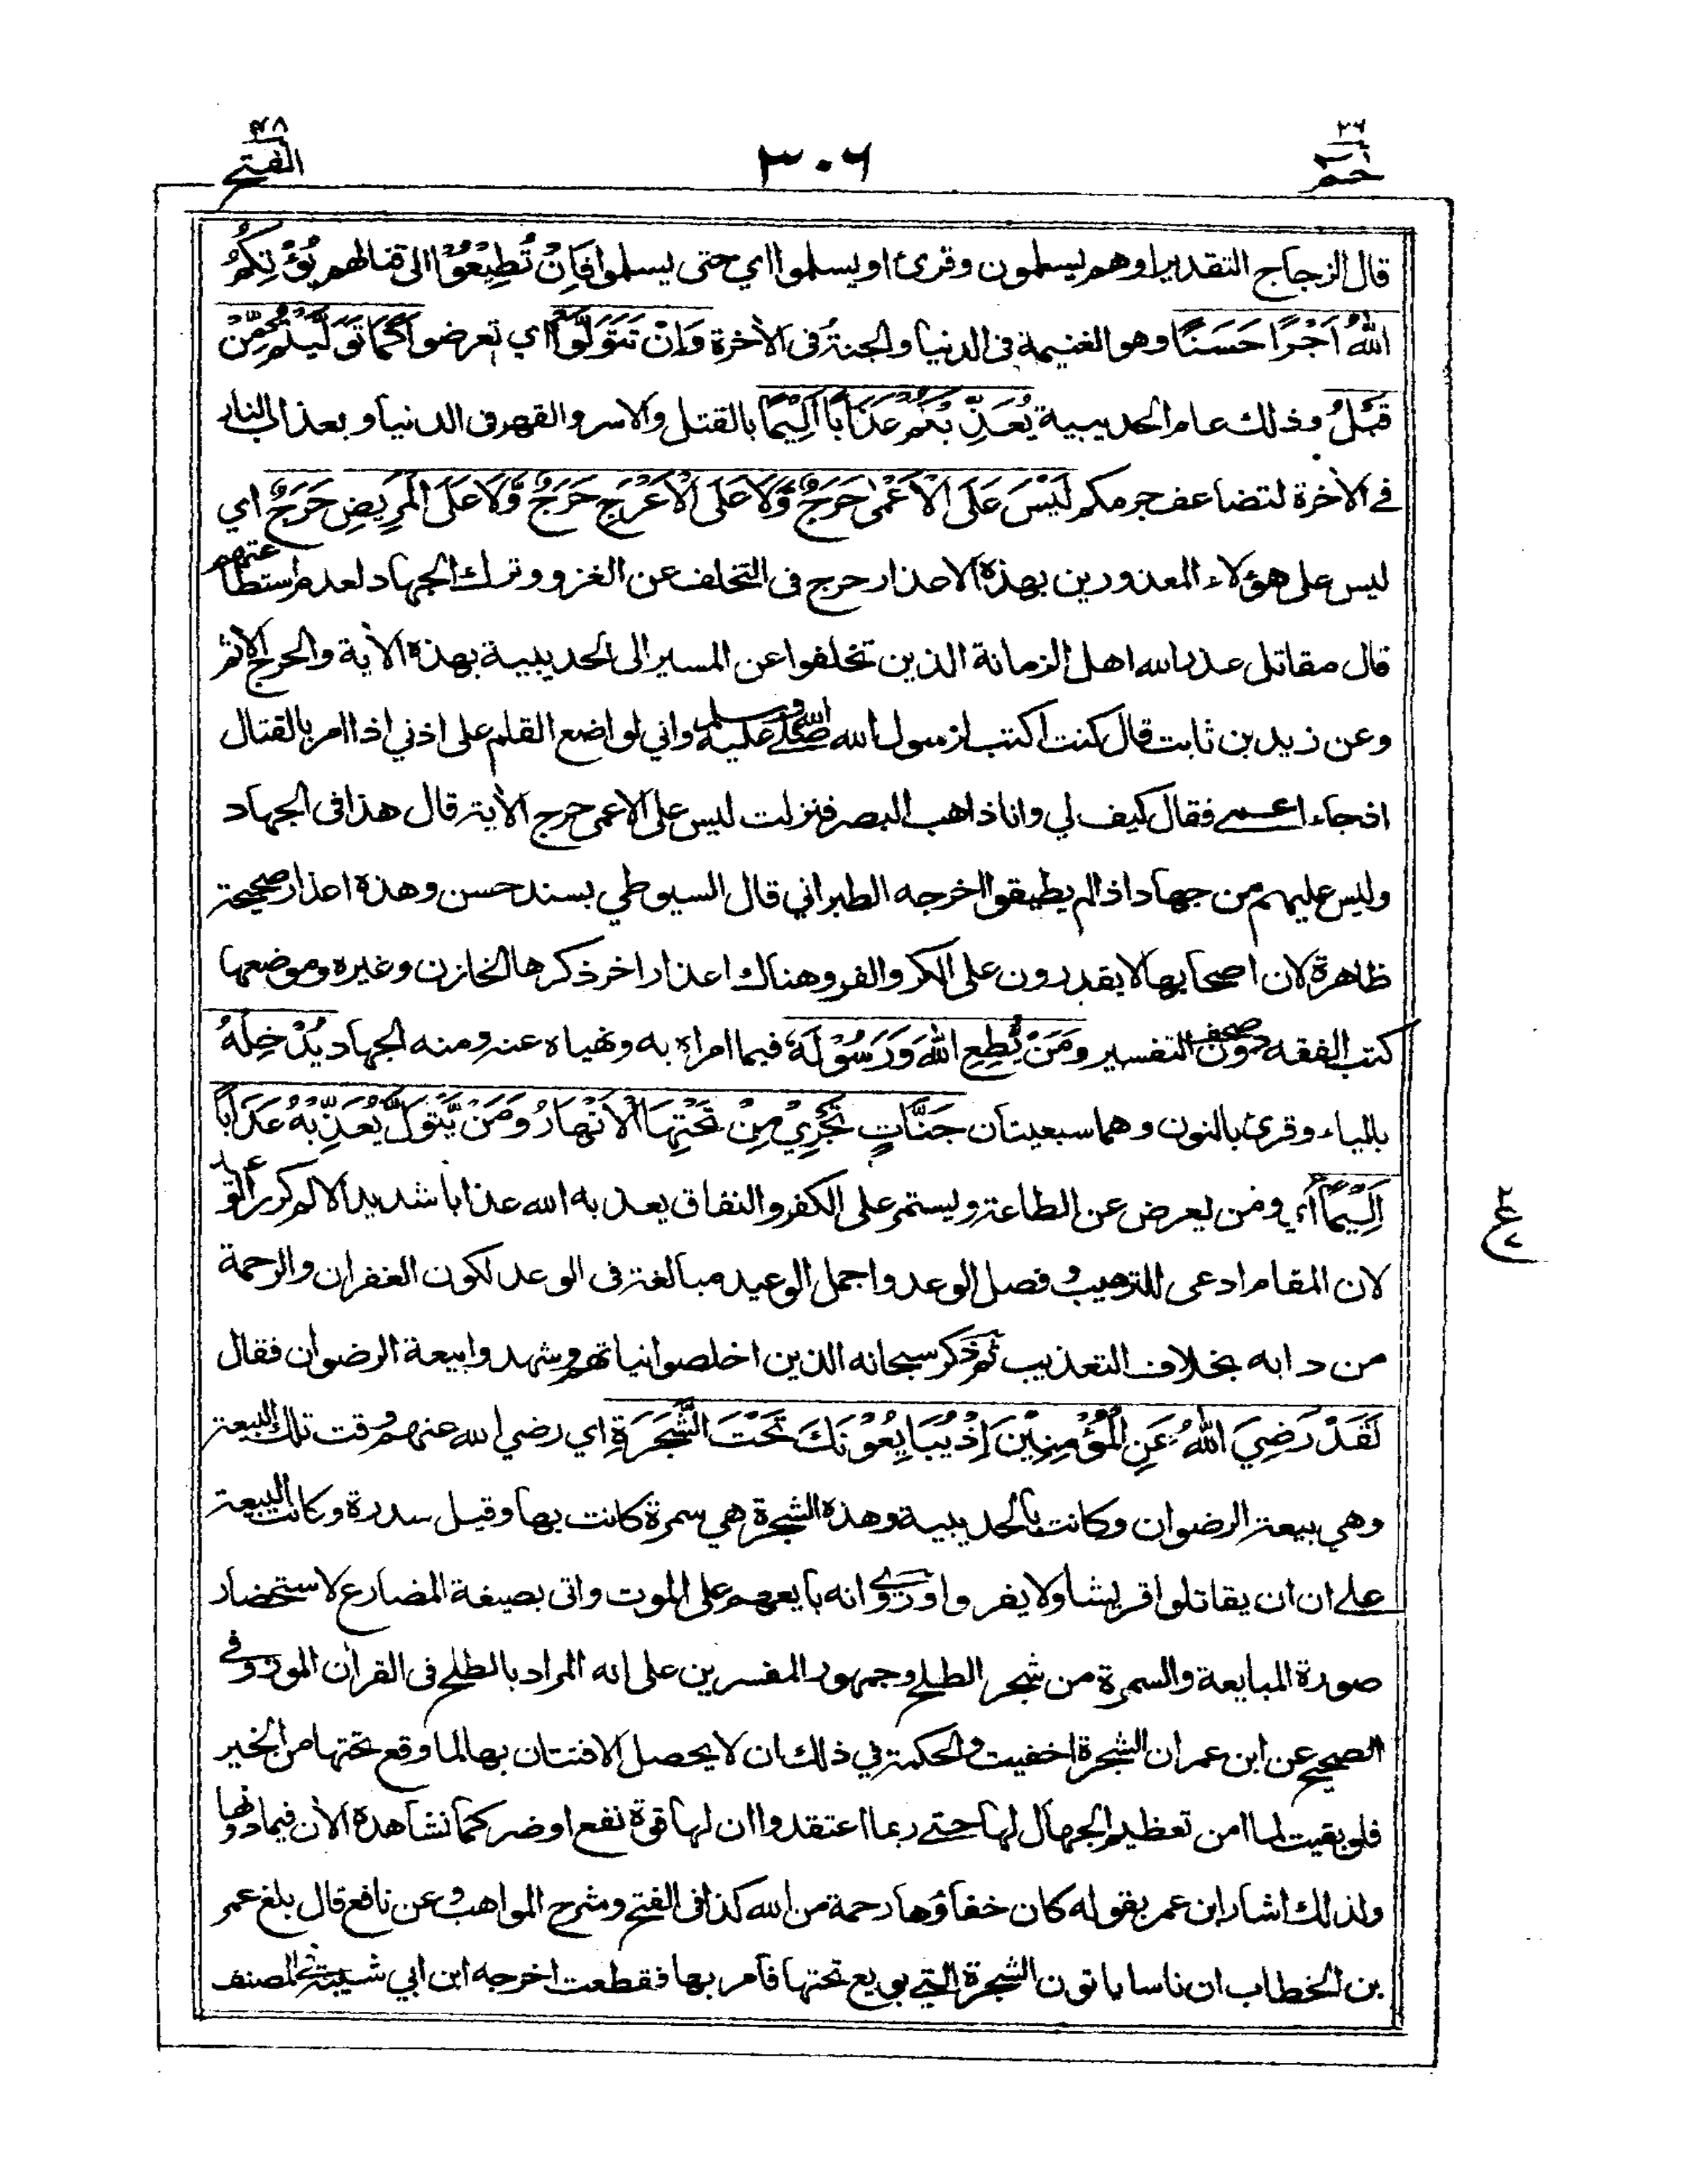 ٢٦
حم
٣٠٦
٤٨
الفتح
قال الزجاج التقدير او هم يسلمون وقرئ او يسلموا اي حتى يسلموا فَاِنْ تُطِيْعُوْا الى قتالهم يُؤْتِكُمُ
اللّٰهُ اَجْرًا حَسَنًا وهو الغنيمة في الدنيا والجنة في الاٰخرة وَاِنْ تَتَوَلَّوْا اي تعرضوا كَمَا تَوَلَّيْتُمْ مِّنْ
قَبْلُ وذلك عام الحديبية يُعَذِّبْكُمْ عَذَابًا اَلِيْمًا بالقتل والاسر والقهر في الدنيا وبعذاب النار
في الاٰخرة لتضاعف جرمكم لَيْسَ عَلَى الْاَعْمٰى حَرَجٌ وَّلَا عَلَى الْاَعْرَجِ حَرَجٌ وَّلَا عَلَى الْمَرِيْضِ حَرَجٌ اي
ليس على هؤلاء المعذورين بهذه الاعذار حرج في التخلف عن الغزو وترك الجهاد لعدم استطاعتهم
قال مقاتل عذر الله اهل الزمانة الذين تخلفوا عن المسير الى الحديبية بهذه الاٰية والحرج الاثم
وعن زيد بن ثابت قال كنت اكتب لرسول الله صلى الله عليه وسلم واني لواضع القلم على اذني اذ امر بالقتال
اذ جاء اعمى فقال كيف لي وانا ذاهب البصر فنزلت ليس على الاعمى حرج الاٰية قال هذا في الجهاد
وليس عليهم من جهاد اذا لم يطيقوا اخرجه الطبراني قال السيوطي بسند حسن وهذه اعذار صحيحة
ظاهرة لان اصحابها لا يقدرون على الكر والفر وهناك اعذار اخر ذكرها الخازن وغيره وموضعها
كتب الفقه دون صحف التفسير وَمَنْ يُّطِعِ اللّٰهَ وَرَسُوْلَهٗ فيما امراه به ونهياه عنه ومنه الجهاد يُدْخِلْهُ
بالياء وقرئ بالنون وهما سبعيتان جَنّٰتٍ تَجْرِيْ مِنْ تَحْتِهَا الْاَنْهَارُ وَمَنْ يَّتَوَلَّ يُعَذِّبْهُ عَذَابًا
اَلِيْمًا اي ومن يعرض عن الطاعة ويستمر على الكفر والنفاق يعذبه الله عذابا شديد الالم كرر الوعيد
لان المقام ادعى للترهيب وفصل الوعد واجمل الوعيد مبالغة في الوعد لكون الغفران والرحمة
من دابه بخلاف التعذيب ثم ذكر سبحانه الذين اخلصوا نياتهم وشهدوا بيعة الرضوان فقال
لَقَدْ رَضِيَ اللّٰهُ عَنِ الْمُؤْمِنِيْنَ اِذْ يُبَايِعُوْنَكَ تَحْتَ الشَّجَرَةِ اي رضي الله عنهم وقت تلك البيعة
وهي بيعة الرضوان وكانت بالحديبية وهذه الشجرة هي سمرة كانت بها وقيل سدرة وكانت البيعة
على ان ان يقاتلوا قريشا ولا يفروا وروي انه بايعهم على الموت واتى بصيغة المضارع لاستحضار
صورة المبايعة والسمرة من شجر الطلح وجمهور المفسرين على انه المراد بالطلح في القراٰن الموز وفي
الصحيح عن ابن عمر ان الشجرة اخفيت والحكمة في ذلك ان لا يحصل الافتتان بها لما وقع تحتها من الخير
فلو بقيت لما امن تعظيم الجهال لها حتى ربما اعتقدوا ان لها قوة نفع او ضر كما نشاهده الاٰن فيما دونها
ولذلك اشار ابن عمر بقوله كان خفاؤها رحمة من الله كذا في الفتح وشرح المواهب وعن نافع قال بلغ عمر
بن الخطاب ان ناسا ياتون الشجرة التي بويع تحتها فامر بها فقطعت اخرجه ابن ابي شيبة في المصنف
ع